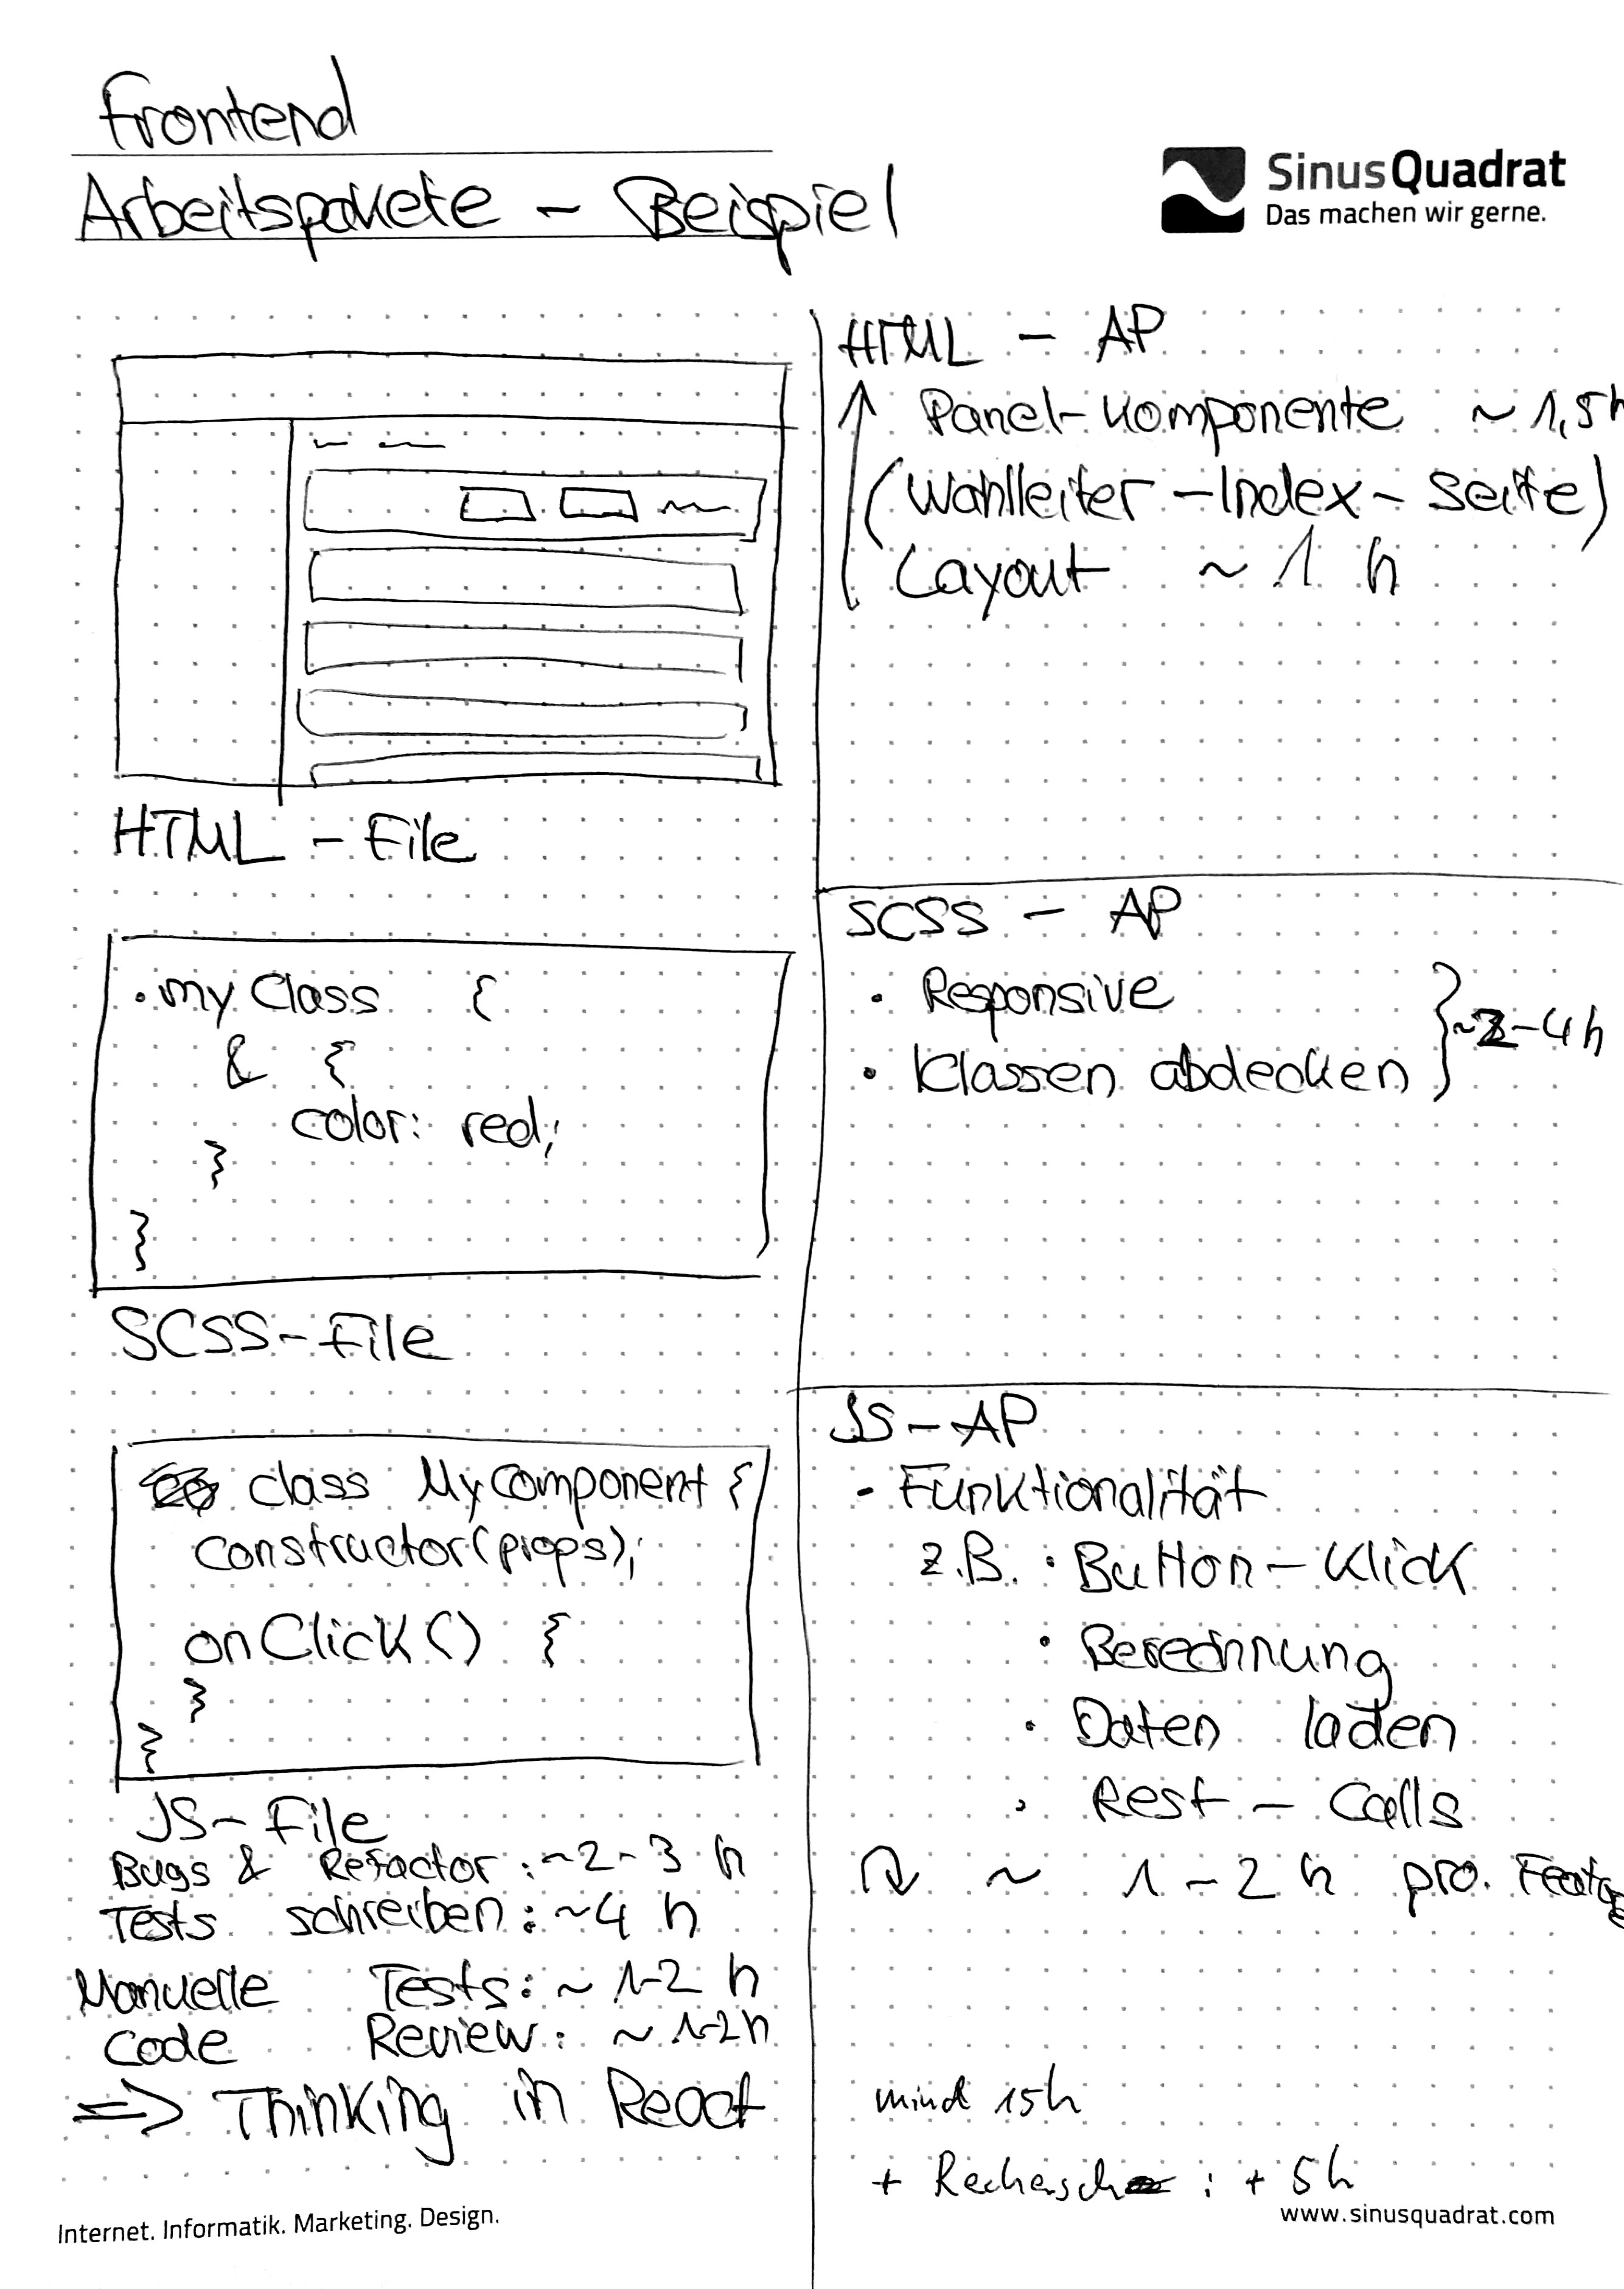 Frontend
Arbeitspakete - Beispiel
SinusQuadrat
Das machen wir gerne.
HTML - File
.myClass {
& {
color: red;
}
}
SCSS-File
class MyComponent {
constructor(props);
onClick() {
}
}
JS-File
Bugs & Refactor: ~2-3 h
Tests schreiben: ~4 h
Manuelle Tests: ~ 1-2 h
Code Review: ~ 1-2h
=> Thinking in React
HTML - AP
Panel-Komponente ~ 1,5h
(Wahlleiter-Index-Seite)
Layout ~ 1 h
SCSS - AP
• Responsive
• Klassen abdecken
~2-4h
JS-AP
- Funktionalität
z.B. • Button-Klick
• Berechnung
• Daten laden
• Rest - Calls
~ 1-2 h pro. Feature
mind 15h
+ Recherche : + 5h
Internet. Informatik. Marketing. Design.
www.sinusquadrat.com